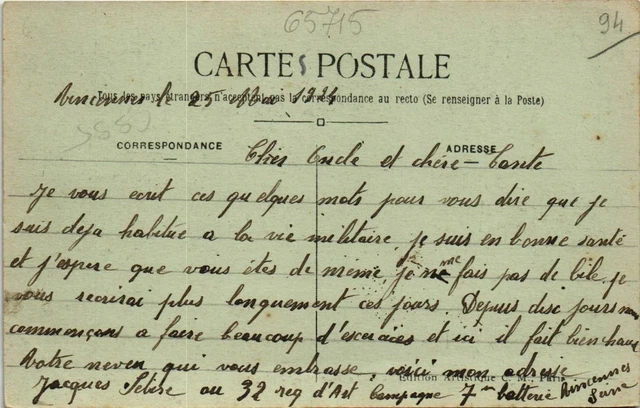 65715
94
CARTES POSTALE
Tous les pays étrangers n'acceptent pas la correspondance au recto (Se renseigner à la Poste)
Vincennes le 25 Mai 1914
CORRESPONDANCE
ADRESSE
Cher Oncle et chère-Tante
Je vous ecrit ces quelques mots pour vous dire que je
suis deja habitue a la vie militaire, je suis en bonne santé
et j'espere que vous étes de même je ne me fais pas de bile, je
vous recrirai plus longuement ces jours. Depuis disc jours nous
commençons a faere beaucoup d'escercices et ici il fait bien chaud
Votre neveu qui vous embrasse, voici mon adresse
Edition Artistique C. M., Paris
Jacques au 32 reg d'Art Campagne 7 batterie Vincennes
Seine